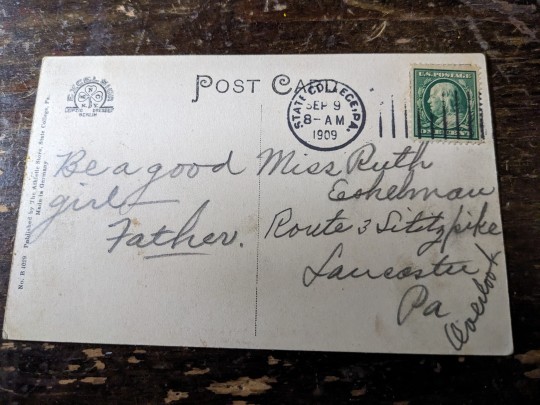 POST CARD
EXCELSIOR
LEIPZIG DRESDEN
BERLIN
STATE COLLEGE, PA.
SEP 9
8-AM
1909
U.S. POSTAGE
ONE CENT
Be a good
girl-
Father.
Miss Ruth
Eshelman
Route 3 Lititz pike
Lancaster
Pa
Overlook
No. B 4078 Published by The Athletic Store, State College, Pa.
Made in Germany